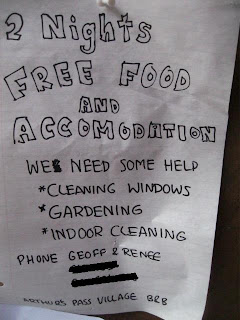 2 Nights
FREE FOOD
AND
ACCOMODATION
WE NEED SOME HELP
*CLEANING WINDOWS
*GARDENING
*INDOOR CLEANING
PHONE GEOFF & RENEE
ARTHUR'S PASS VILLAGE B&B